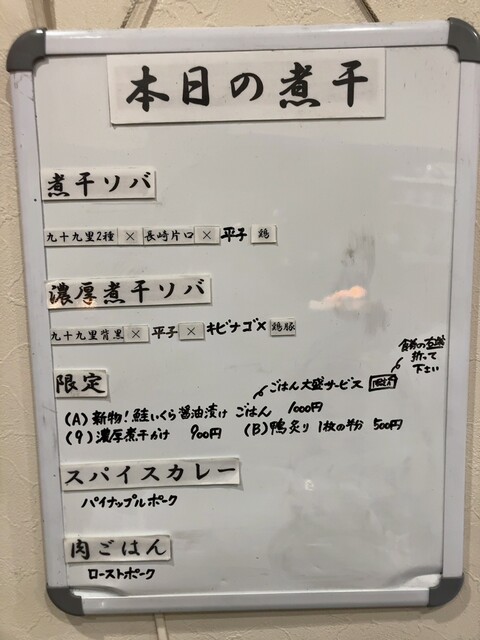 本日の煮干
煮干ソバ
九十九里2種 × 長崎片口 × 平子 鶏
濃厚煮干ソバ
九十九里背黒 × 平子 × キビナゴ× 鶏豚
限定
ごはん大盛サービス
下さい
(A) 新物!鮭いくら醤油漬け ごはん 1000円
(9) 濃厚煮干かけ 900円 (B) 鴨炙り 1枚の半分 500円
スパイスカレー
パイナップルポーク
肉ごはん
ローストポーク